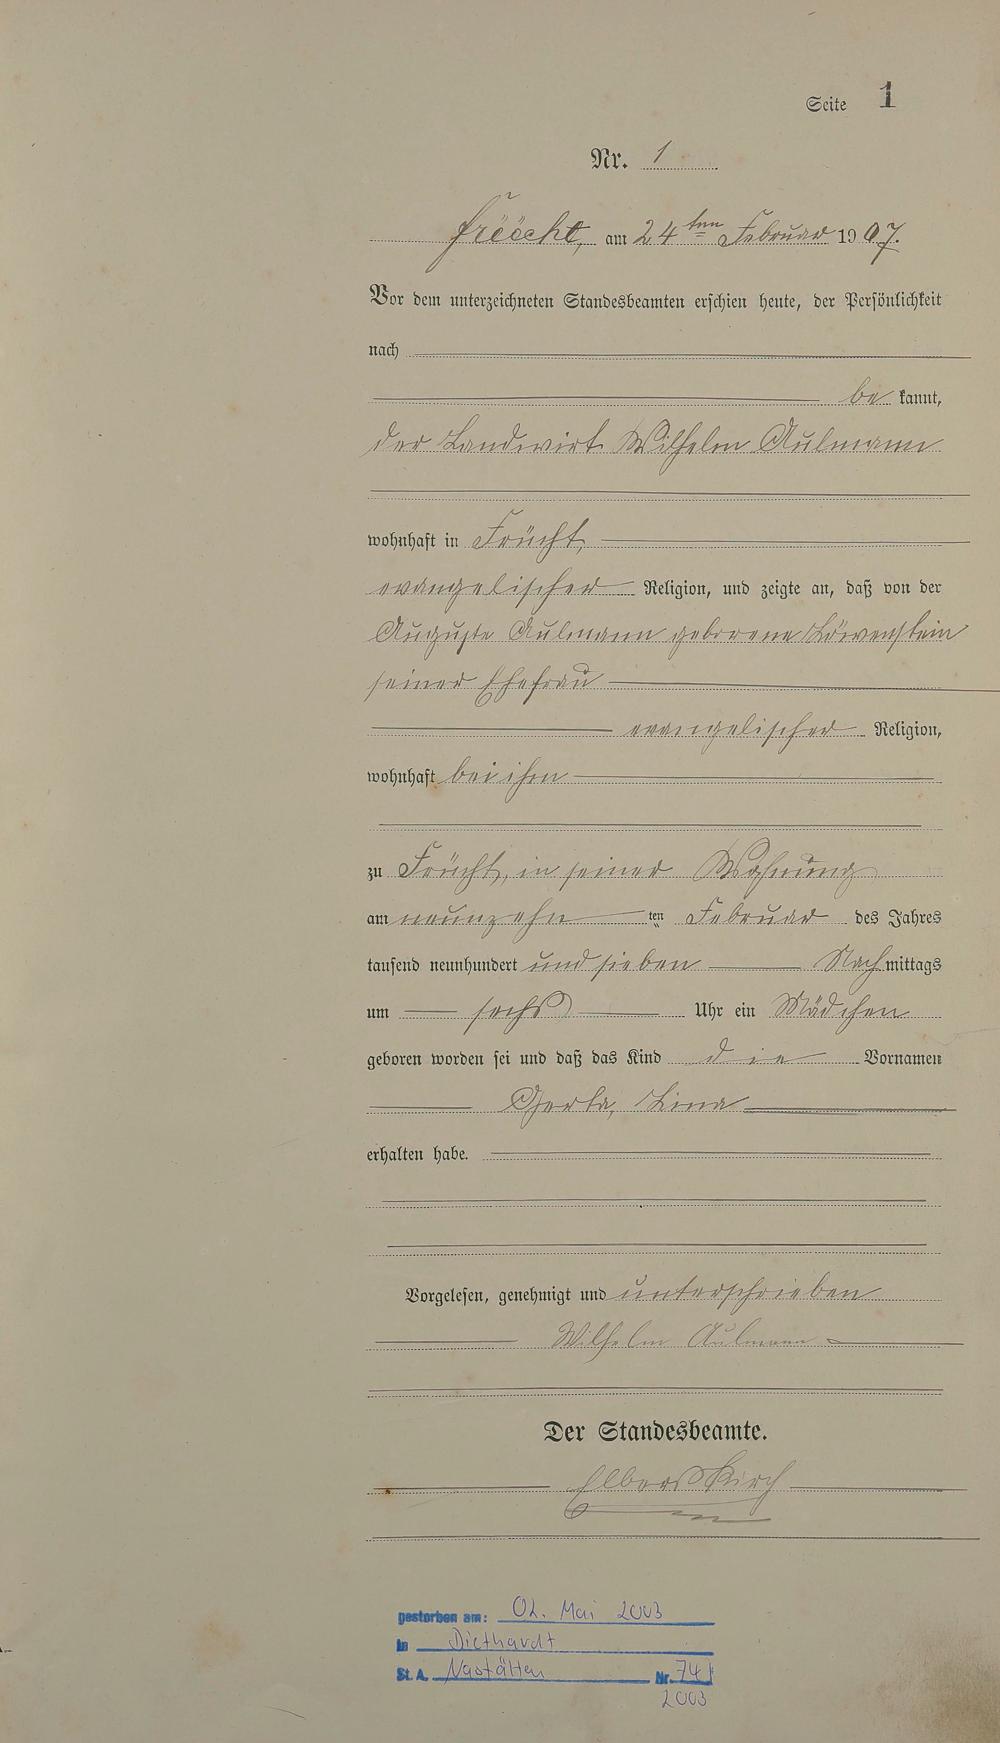 Seite 1
Nr. 1
Früücht, am 24ten Februar 1907.
Vor dem unterzeichneten Standesbeamten erschien heute, der Persönlichkeit
nach
be kannt,
der Landwirt Wilhelm Aulmann
wohnhaft in Frücht,
evangelischer Religion, und zeigte an, daß von der
Auguste Aulmann geborene Löwenstein
seiner Ehefrau
evangelischer Religion,
wohnhaft bei ihm
zu Frücht, in seiner Wohnung
am neunzehn ten Februar des Jahres
tausend neunhundert und sieben Nachmittags
um sechs Uhr ein Mädchen
geboren worden sei und daß das Kind die Vornamen
Lina
erhalten habe.
Vorgelesen, genehmigt und unterschrieben
Wilhelm Aulmann
Der Standesbeamte.
Elberskirch
gestorben am: 02. Mai 2003
in Diethardt
St. A. Nastätten Nr. 74
2003